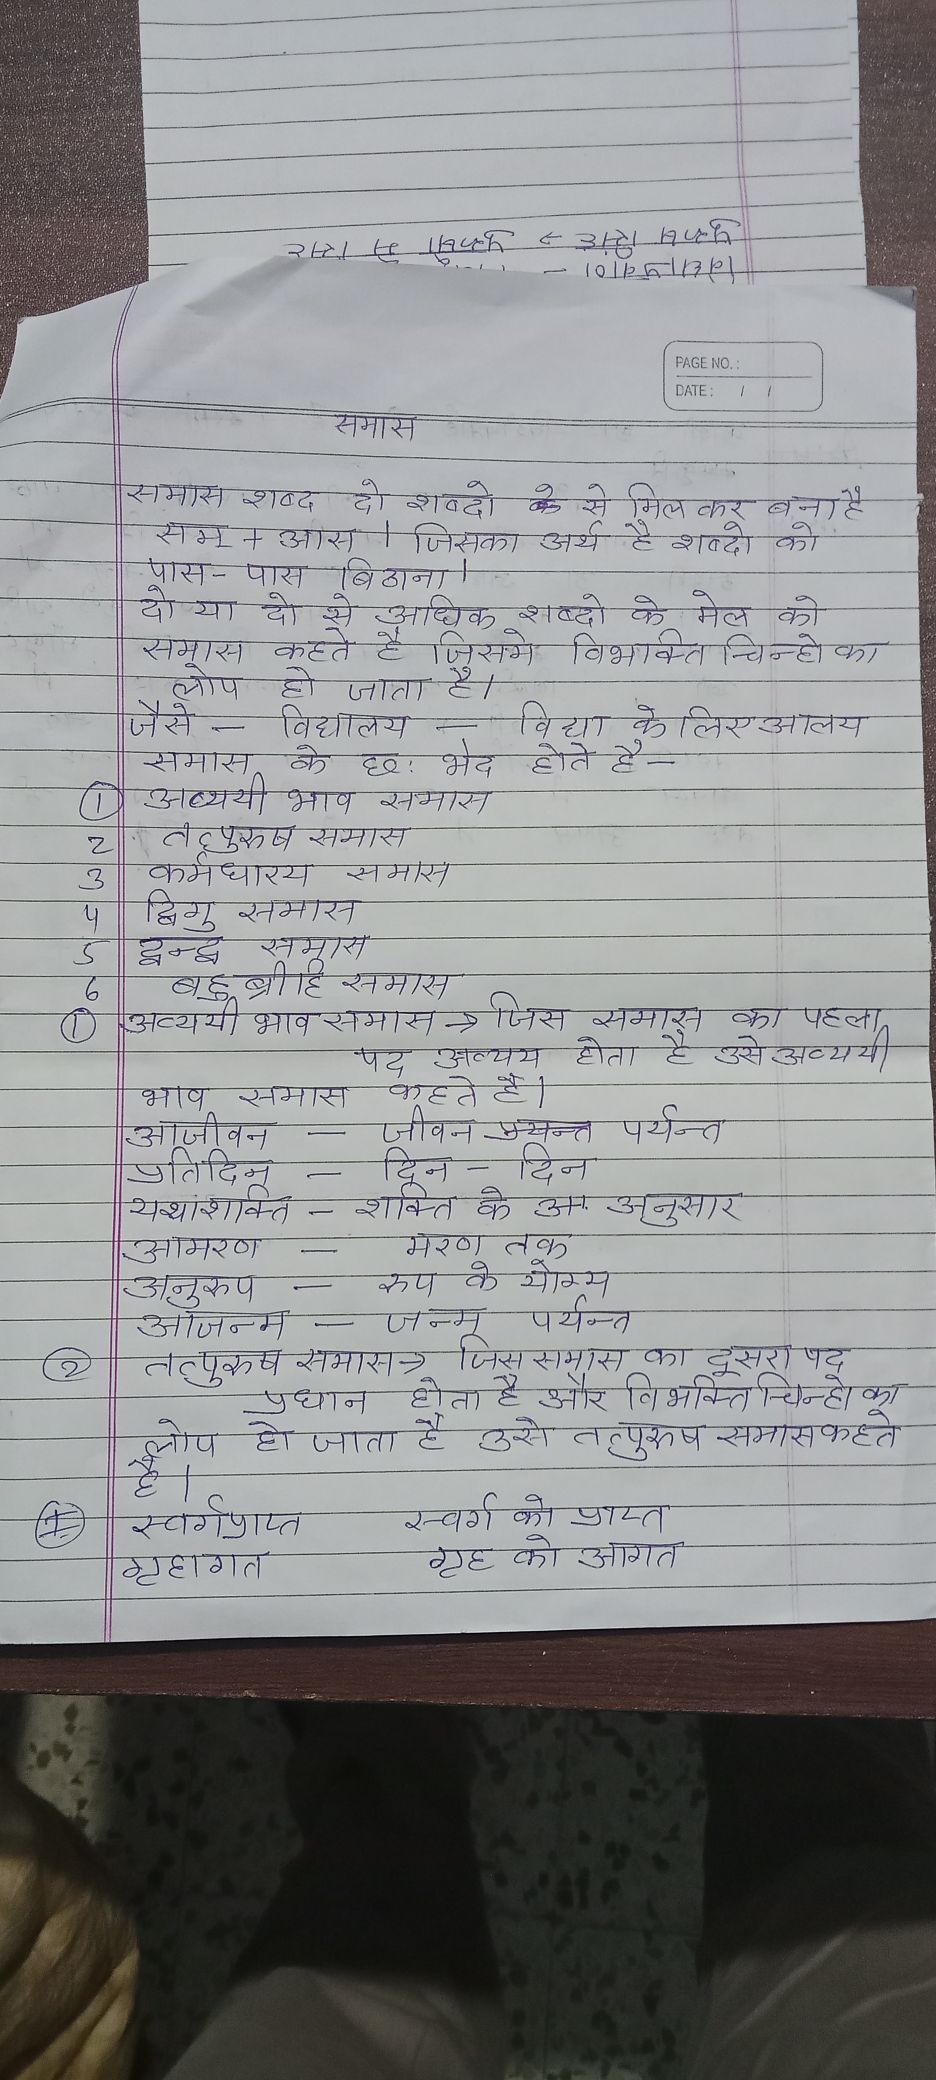 युक्त
PAGE NO.:
DATE: / /
समास
समास शब्द दो शब्दो से मिलकर बना है
सम् + आस । जिसका अर्थ है शब्दो को
पास-पास बिठाना।
दो या दो से अधिक शब्दो के मेल को
समास कहते है जिसमे विभक्ति चिन्हो का
लोप हो जाता है।
जैसे - विद्यालय - विद्या के लिए आलय
समास के छः भेद होते है -
① अव्ययी भाव समास
2 तत्पुरुष समास
3 कर्मधारय समास
4 द्विगु समास
5 द्वन्द्व समास
6 बहुब्रीहि समास
① अव्ययी भाव समास → जिस समास का पहला
पद अव्यय होता है उसे अव्ययी
भाव समास कहते है।
आजीवन - जीवन पर्यन्त
प्रतिदिन - दिन - दिन
यथाशक्ति - शक्ति के अनुसार
आमरण - मरण तक
अनुरुप - रुप के योग्य
आजन्म - जन्म पर्यन्त
② तत्पुरुष समास → जिस समास का दूसरा पद
प्रधान होता है और विभक्ति चिन्हो का
लोप हो जाता है उसे तत्पुरुष समास कहते
है।
① स्वर्गप्राप्त स्वर्ग को प्राप्त
गृहागत गृह को आगत